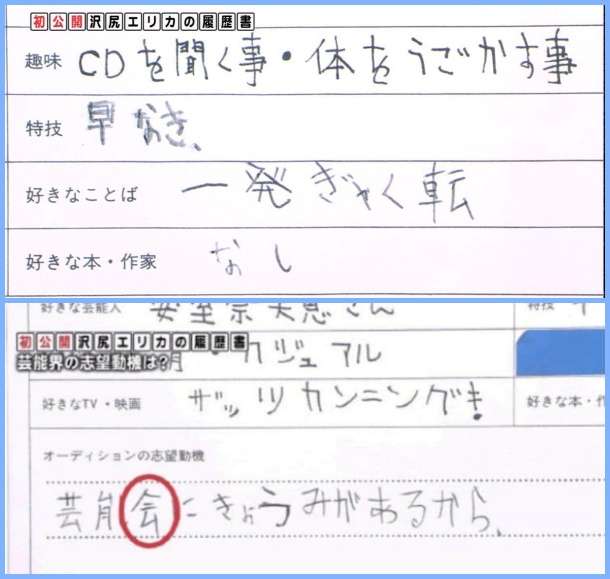 初公開沢尻エリカの履歴書
趣味 CDを聞く事・体をうごかす事
特技 早なき、
好きなことば 一発ぎゃく転
好きな本・作家 なし
好きな芸能人 安室奈美恵さん 特技
初公開沢尻エリカの履歴書
芸能界の志望動機は?
・カジュアル
好きなTV・映画 ザッツカンニング! 好きな本・作
オーディションの志望動機
芸能会にきょうみがあるから、